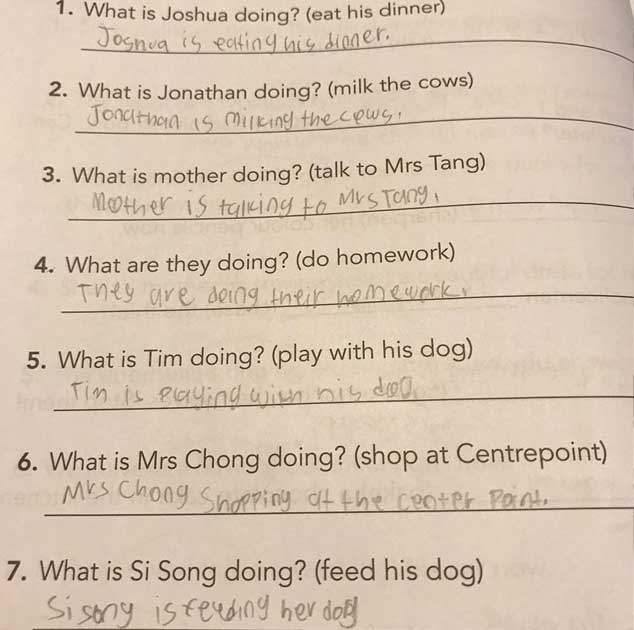 1. What is Joshua doing? (eat his dinner)
Joshua is eating his dinner.
2. What is Jonathan doing? (milk the cows)
Jonathan is milking the cows.
3. What is mother doing? (talk to Mrs Tang)
Mother is talking to Mrs Tang.
4. What are they doing? (do homework)
They are doing their homework.
5. What is Tim doing? (play with his dog)
Tim is playing with his dog.
6. What is Mrs Chong doing? (shop at Centrepoint)
Mrs Chong Shopping at the center Point.
7. What is Si Song doing? (feed his dog)
Si song is feeding her dog